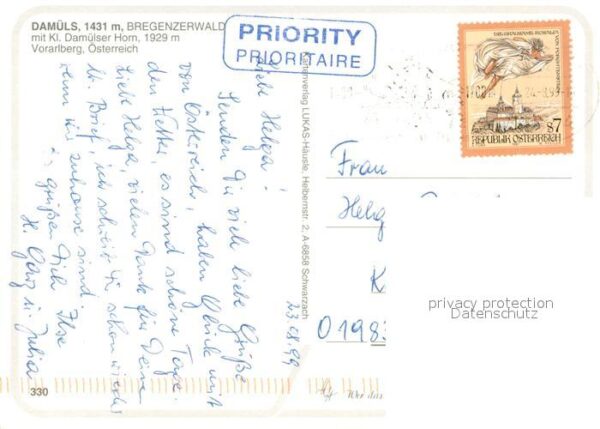 DAMÜLS, 1431 m, BREGENZERWALD
mit Kl. Damülser Horn, 1929 m
Vorarlberg, Österreich
PRIORITY
PRIORITAIRE
REPUBLIK ÖSTERREICH
S7
Kartenverlag LUKAS-Häusle, Helbernstr. 2, A-6858 Schwarzach
23.08.99
Liebe Helga!
Senden Dir viele liebe Grüße
von Österreich, haben Glück mit
den Wetter, es sind schöne Tage.
Liebe Helga, vielen Dank für Deinen
lb. Brief, ich schreibe Dir schon wieder
wenn wir zuhause sind.
Es grüßen Dich Ilse
H. u. Julia
Frau
Helg
K
01983
privacy protection
Datenschutz
330